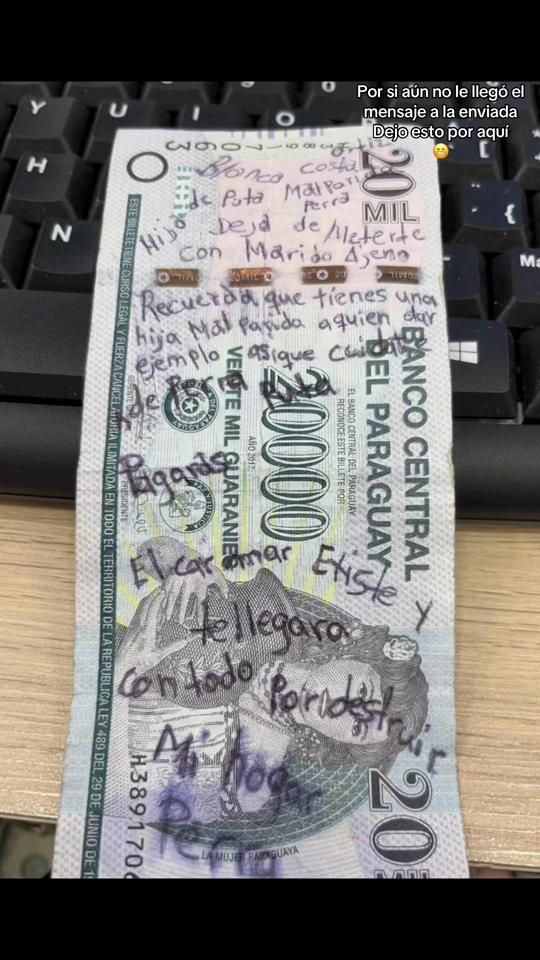 Por si aún no le llegó el
mensaje a la enviada
Dejo esto por aquí
😬
Blanca Costa
de Puta Malpari
Hija Perra
Deja de Meterte
con Marido Ajeno
Recuerda que tienes una
hija Mal Parida aquien dar
ejemplo asique Cuidate
de Perra Puta
Pagaras
El car omar Etiste y
tellegara
con todo Por destruir
Mi hogar
20 MIL
BANCO CENTRAL
DEL PARAGUAY
EL BANCO CENTRAL DEL PARAGUAY
RECONOCE ESTE BILLETE POR
20000
AÑO 2017
VEINTE MIL GUARANIES
PRESIDENTE
ESTE BILLETE TIENE CURSO LEGAL Y FUERZA CANCELATORIA ILIMITADA EN TODO EL TERRITORIO DE LA REPUBLICA LEY 489 DEL 29 DE JUNIO DE 19
H3891706
LA MUJER PARAGUAYA
20
Y
U
H
N
Ma